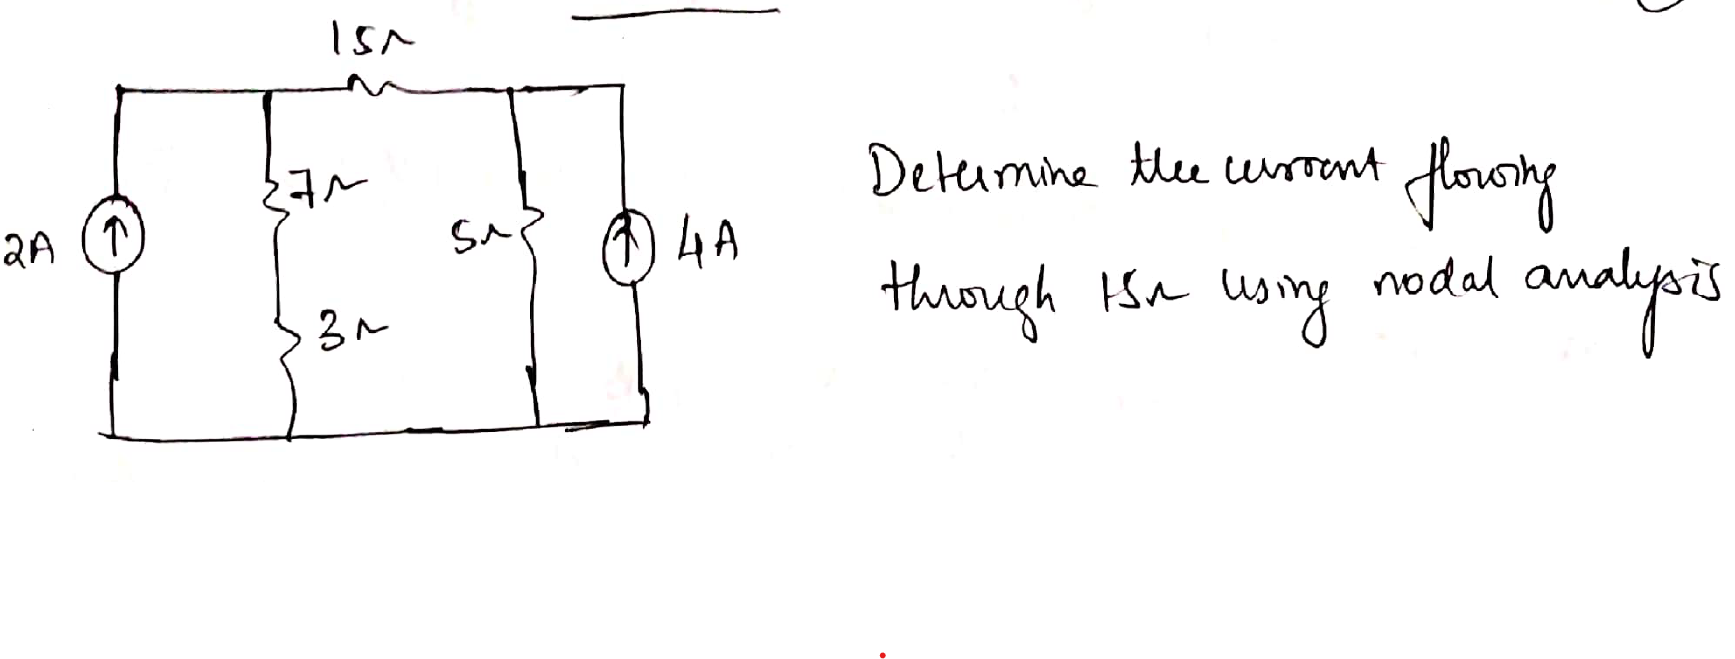 15Ω
7Ω
2A
5Ω
4A
3Ω
Determine the current flowing
through 15Ω using nodal analysis